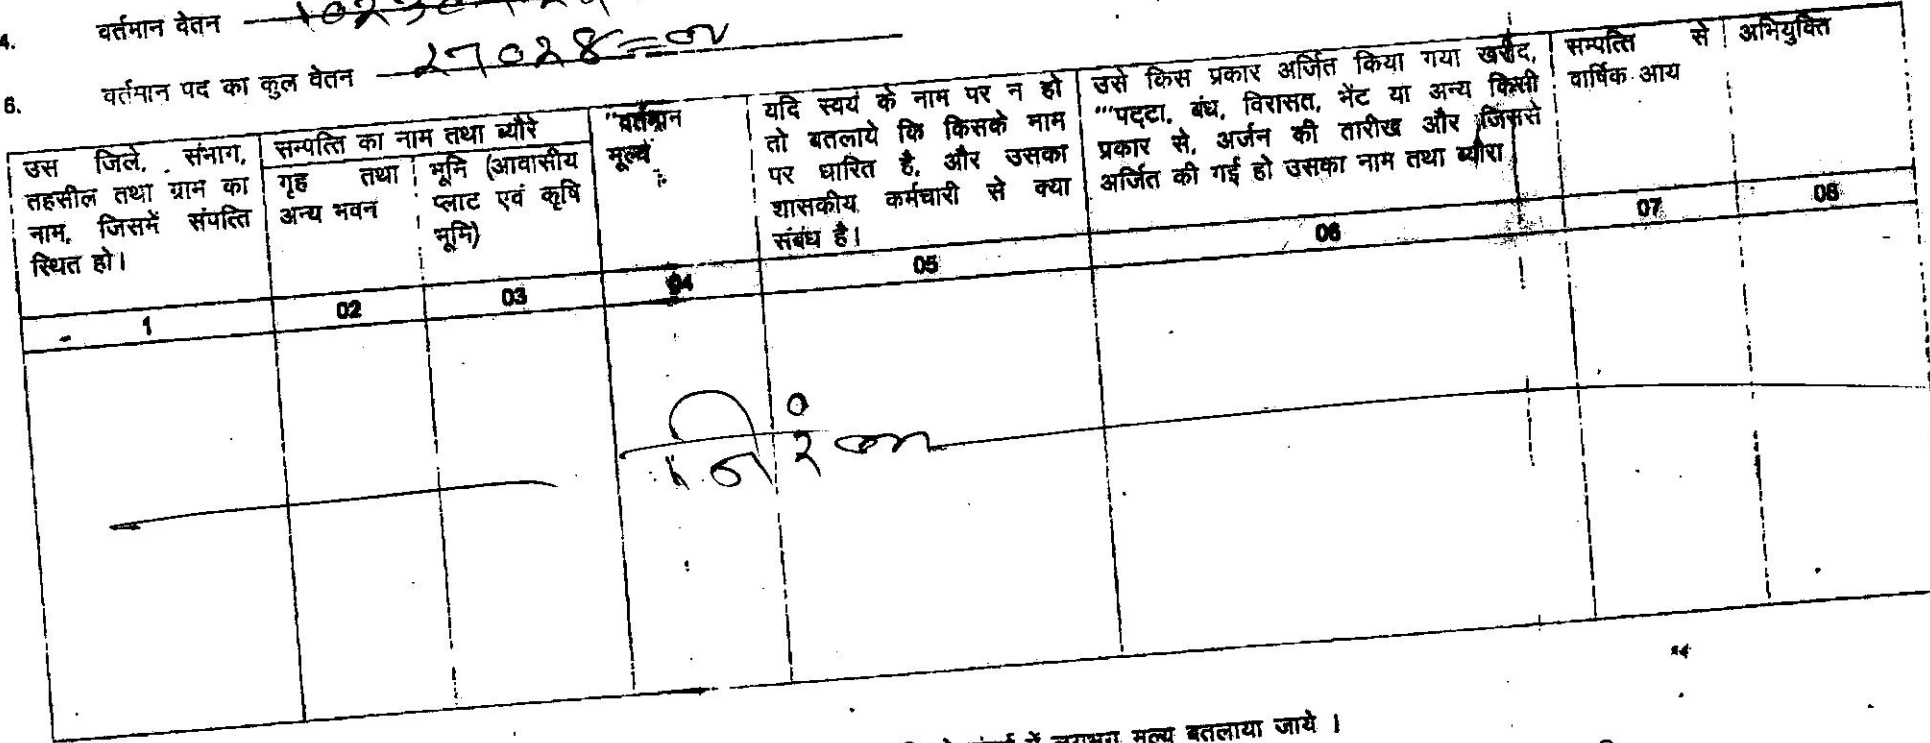 4. वर्तमान वेतन
6. वर्तमान पद का कुल वेतन २७०२४=००
उस जिले, संभाग, तहसील तथा ग्राम का नाम, जिसमें संपत्ति स्थित हो।
सम्पत्ति का नाम तथा ब्यौरे
गृह तथा अन्य भवन
भूमि (आवासीय प्लाट एवं कृषि भूमि)
वर्तमान मूल्य
यदि स्वयं के नाम पर न हो तो बतलाये कि किसके नाम पर धारित है, और उसका शासकीय कर्मचारी से क्या संबंध है।
उसे किस प्रकार अर्जित किया गया खरीद, '''पट्टा, बंध, विरासत, भेंट या अन्य किसी प्रकार से, अर्जन की तारीख और जिससे अर्जित की गई हो उसका नाम तथा ब्यौरा
सम्पत्ति से वार्षिक आय
अभियुक्ति
1 02 03 04 05 06 07 08
निरंक
लगभग मूल्य बतलाया जाये ।